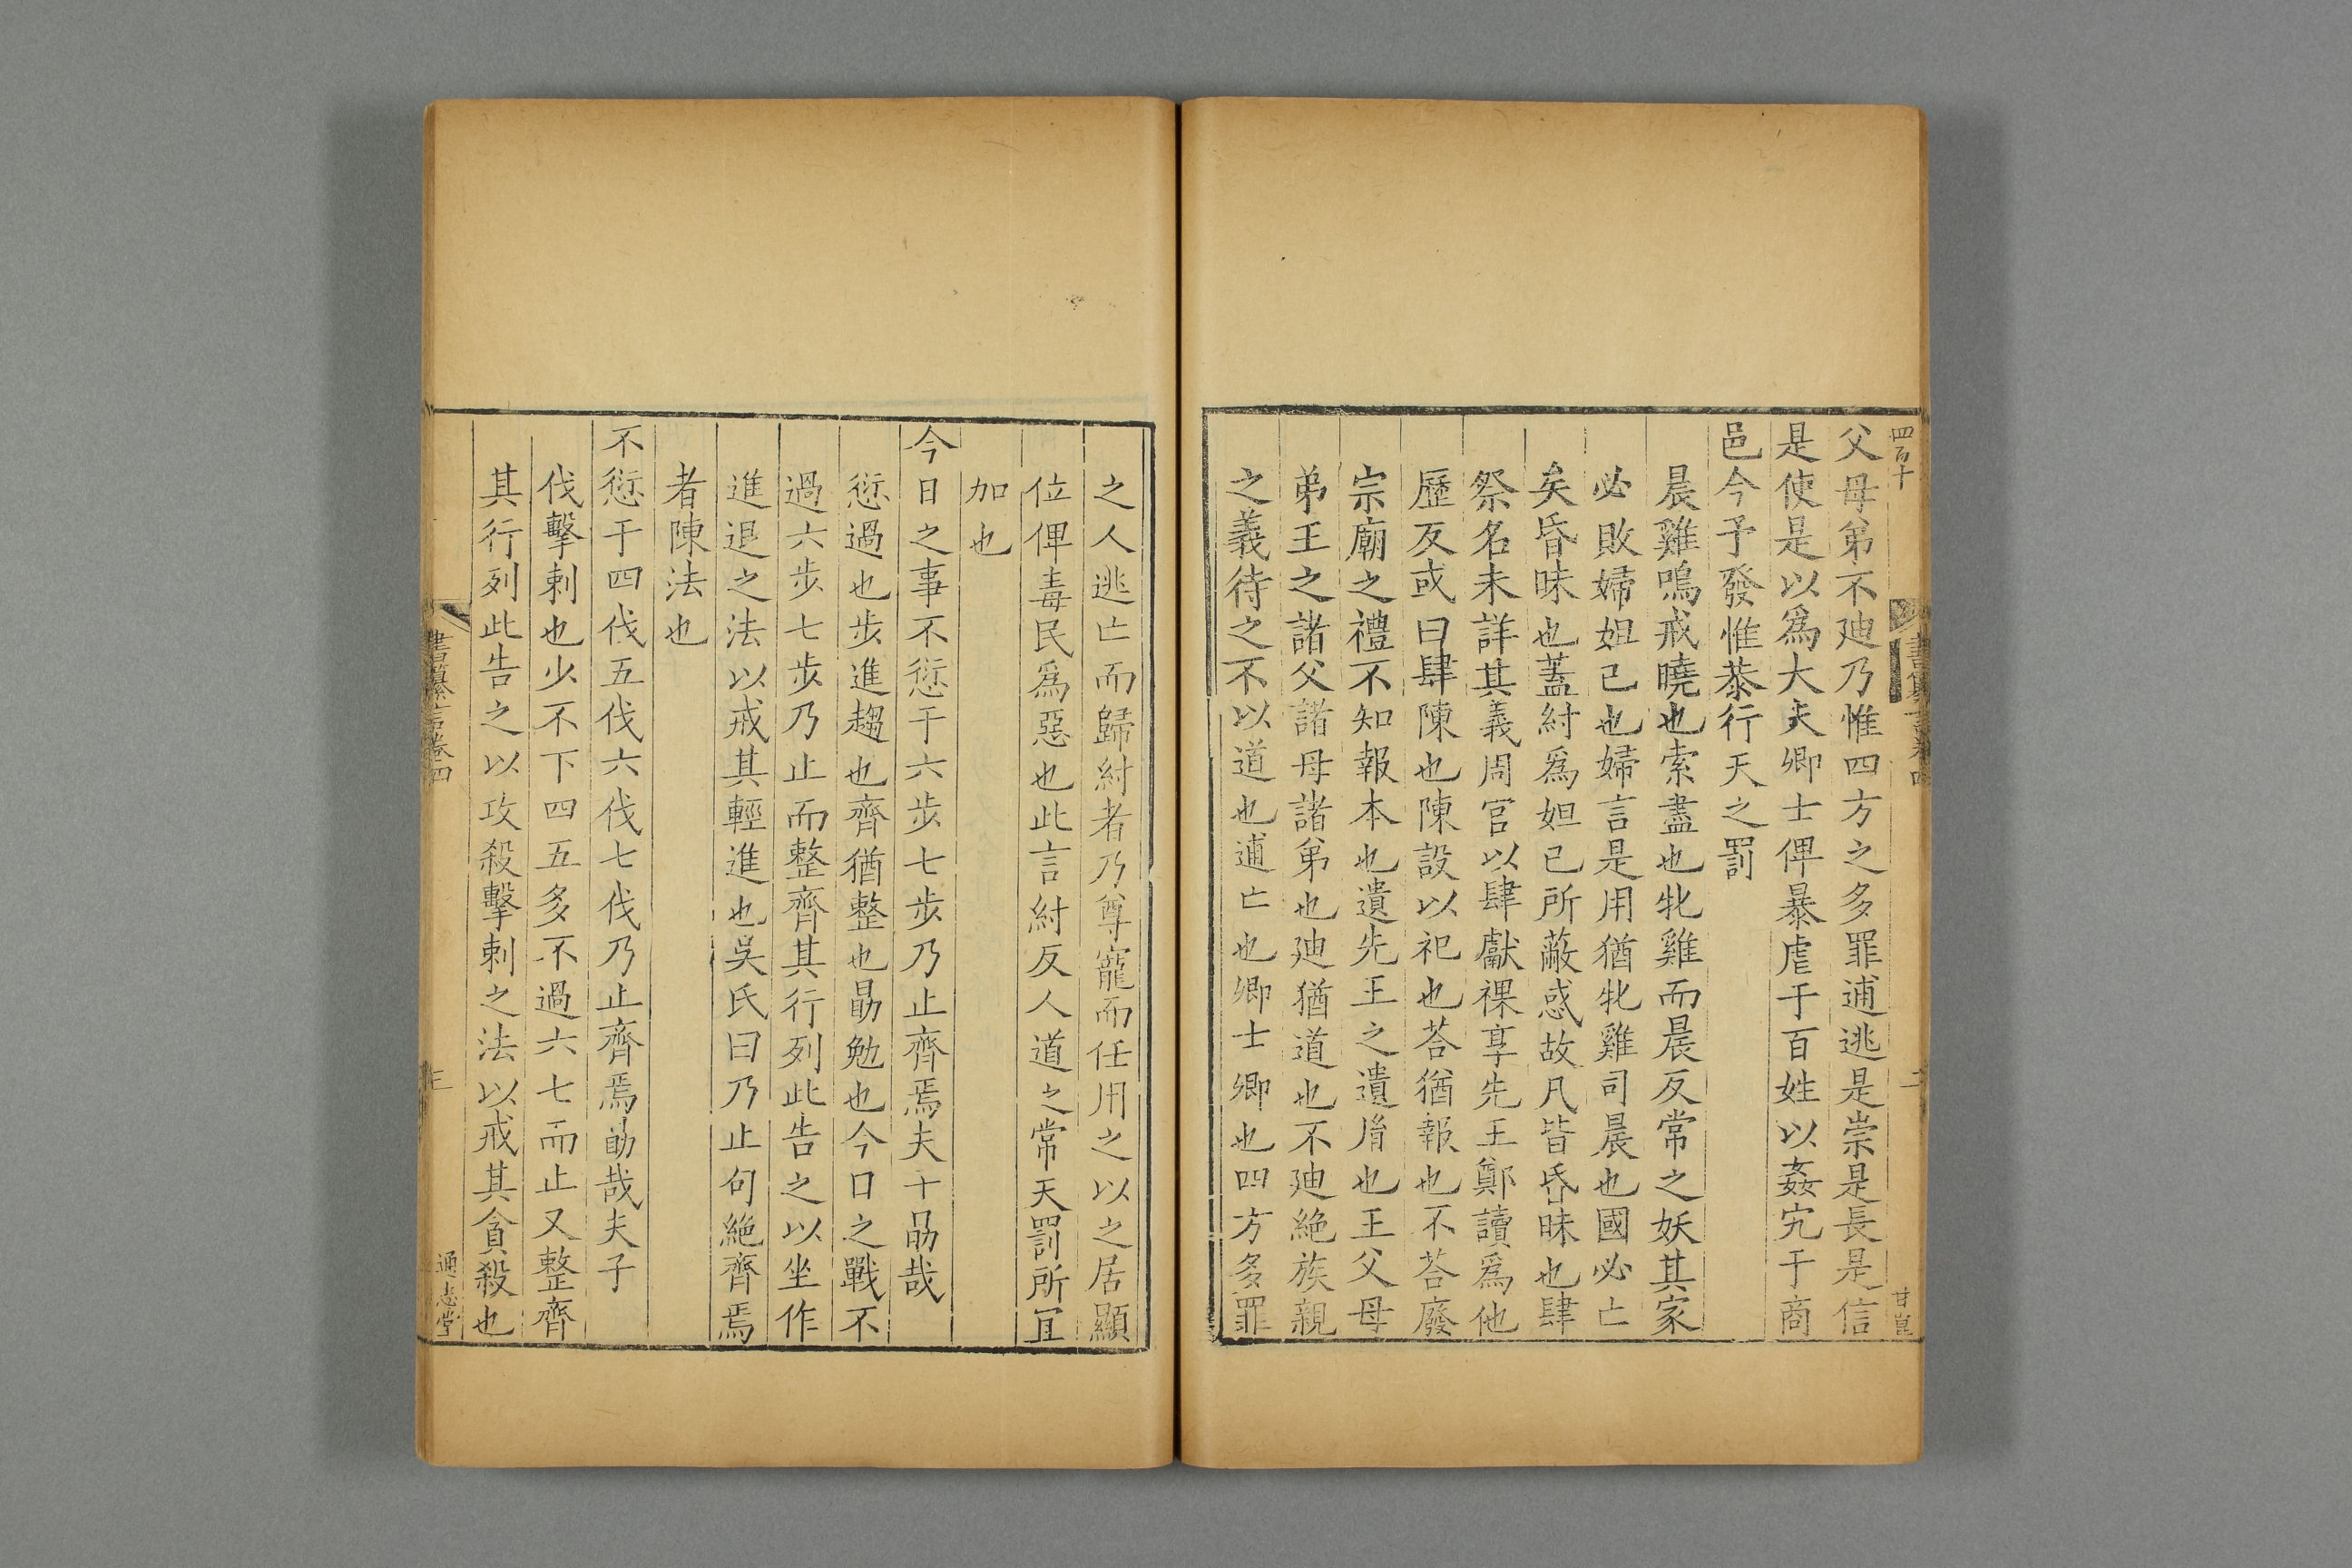 四百十
書纂言卷四
二
甘崑
父母弟不迪乃惟四方之多罪逋逃是崇是長是信
是使是以爲大夫卿士俾暴虐于百姓以姦宄于商
邑今予發惟恭行天之罰
晨雞鳴戒曉也索盡也牝雞而晨反常之妖其家
必敗婦妲己也婦言是用猶牝雞司晨也國必亡
矣昏昧也蓋紂爲妲己所蔽惑故凡皆昏昧也肆
祭名未詳其義周官以肆獻祼享先王鄭讀爲他
歷反或曰肆陳也陳設以祀也荅猶報也不荅廢
宗廟之禮不知報本也遺先王之遺胤也王父母
弟王之諸父諸母諸弟也迪猶道也不迪絶族親
之義待之不以道也逋亡也卿士卿也四方多罪
之人逃亡而歸紂者乃尊寵而任用之以之居顯
位俾毒民爲惡也此言紂反人道之常天罰所宜
加也
今日之事不愆于六步七步乃止齊焉夫子勗哉
愆過也步進趨也齊猶整也勗勉也今日之戰不
過六步七步乃止而整齊其行列此告之以坐作
進退之法以戒其輕進也吳氏曰乃止句絶齊焉
者陳法也
不愆于四伐五伐六伐七伐乃止齊焉勗哉夫子
伐擊刺也少不下四五多不過六七而止又整齊
其行列此告之以攻殺擊刺之法以戒其貪殺也
書纂言卷四
三
通志堂